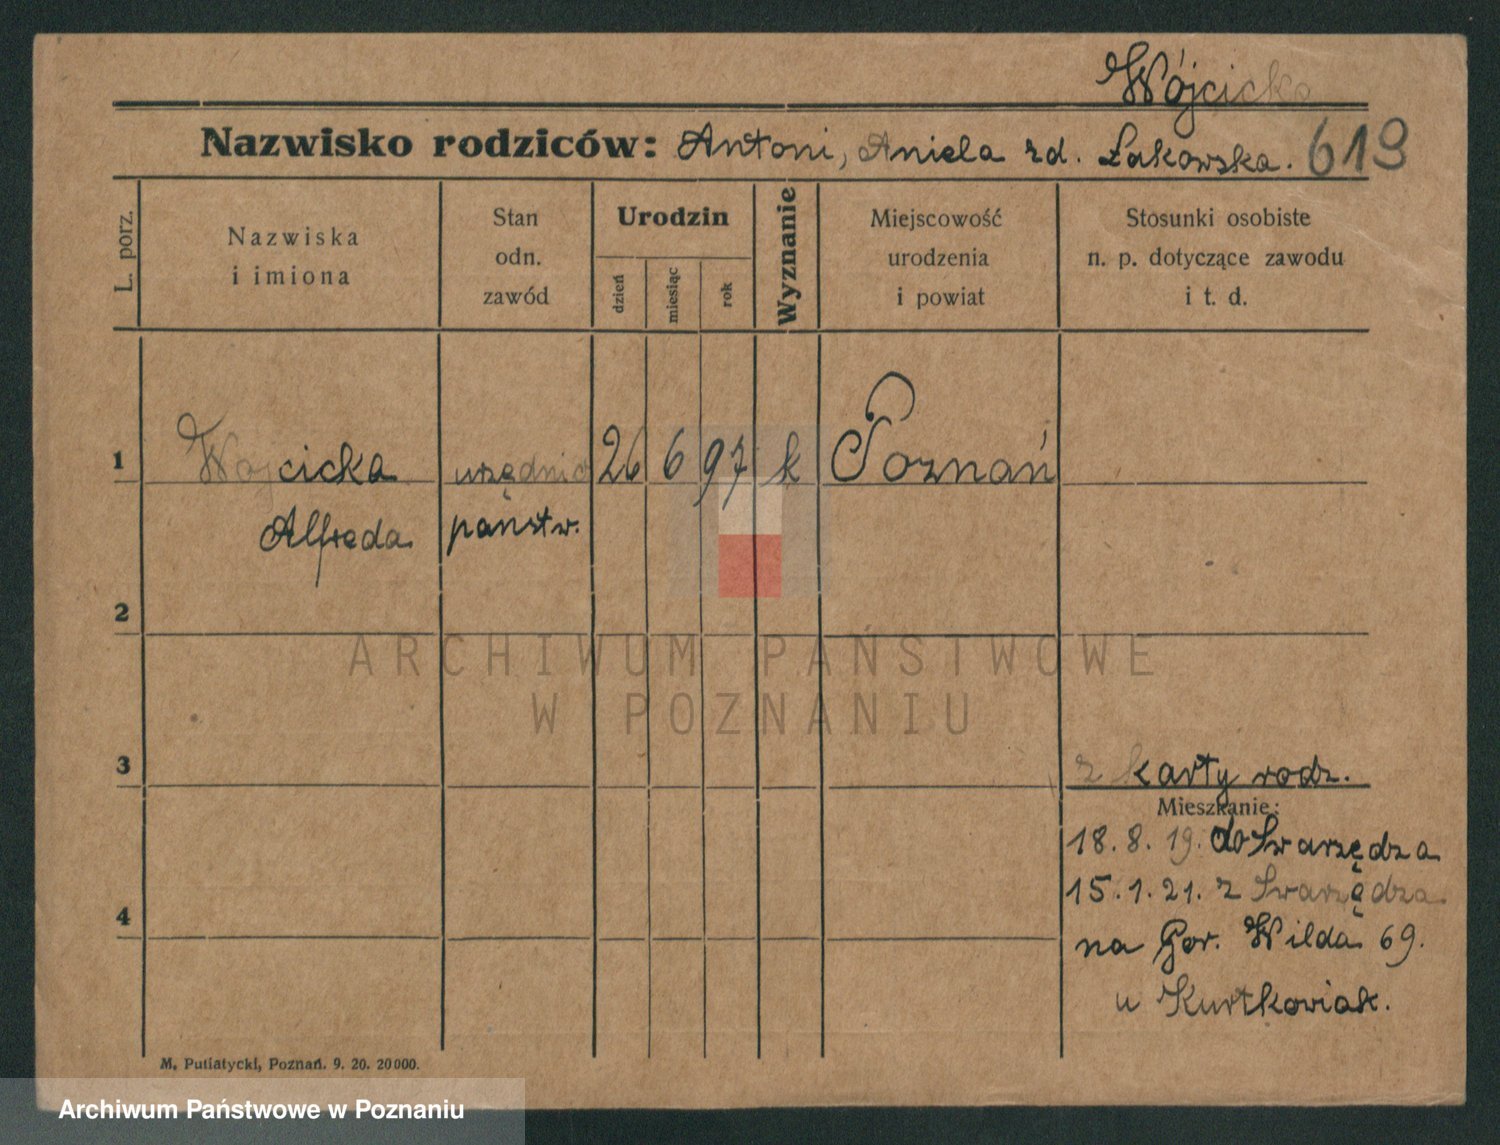 Wójcicka
Nazwisko rodziców: Antoni, Aniela rd. Łakowska. 619
L. porz.
Nazwiska
i imiona
Stan
odn.
zawód
Urodzin
dzień
miesiąc
rok
Wyznanie
Miejscowość
urodzenia
i powiat
Stosunki osobiste
n. p. dotyczące zawodu
i t. d.
1 Wojcicka urzędnic 26 6 97 k Poznań
Alfreda państw.
2
ARCHIWUM PAŃSTWOWE
W POZNANIU
3 z karty rodz.
Mieszkanie:
18.8.19. do Swarzędza
15.1.21. z Swarzędza
4
na Gor. Wilda 69.
u Kurtkowiak.
M. Putiatycki, Poznań. 9. 20. 20000.
Archiwum Państwowe w Poznaniu